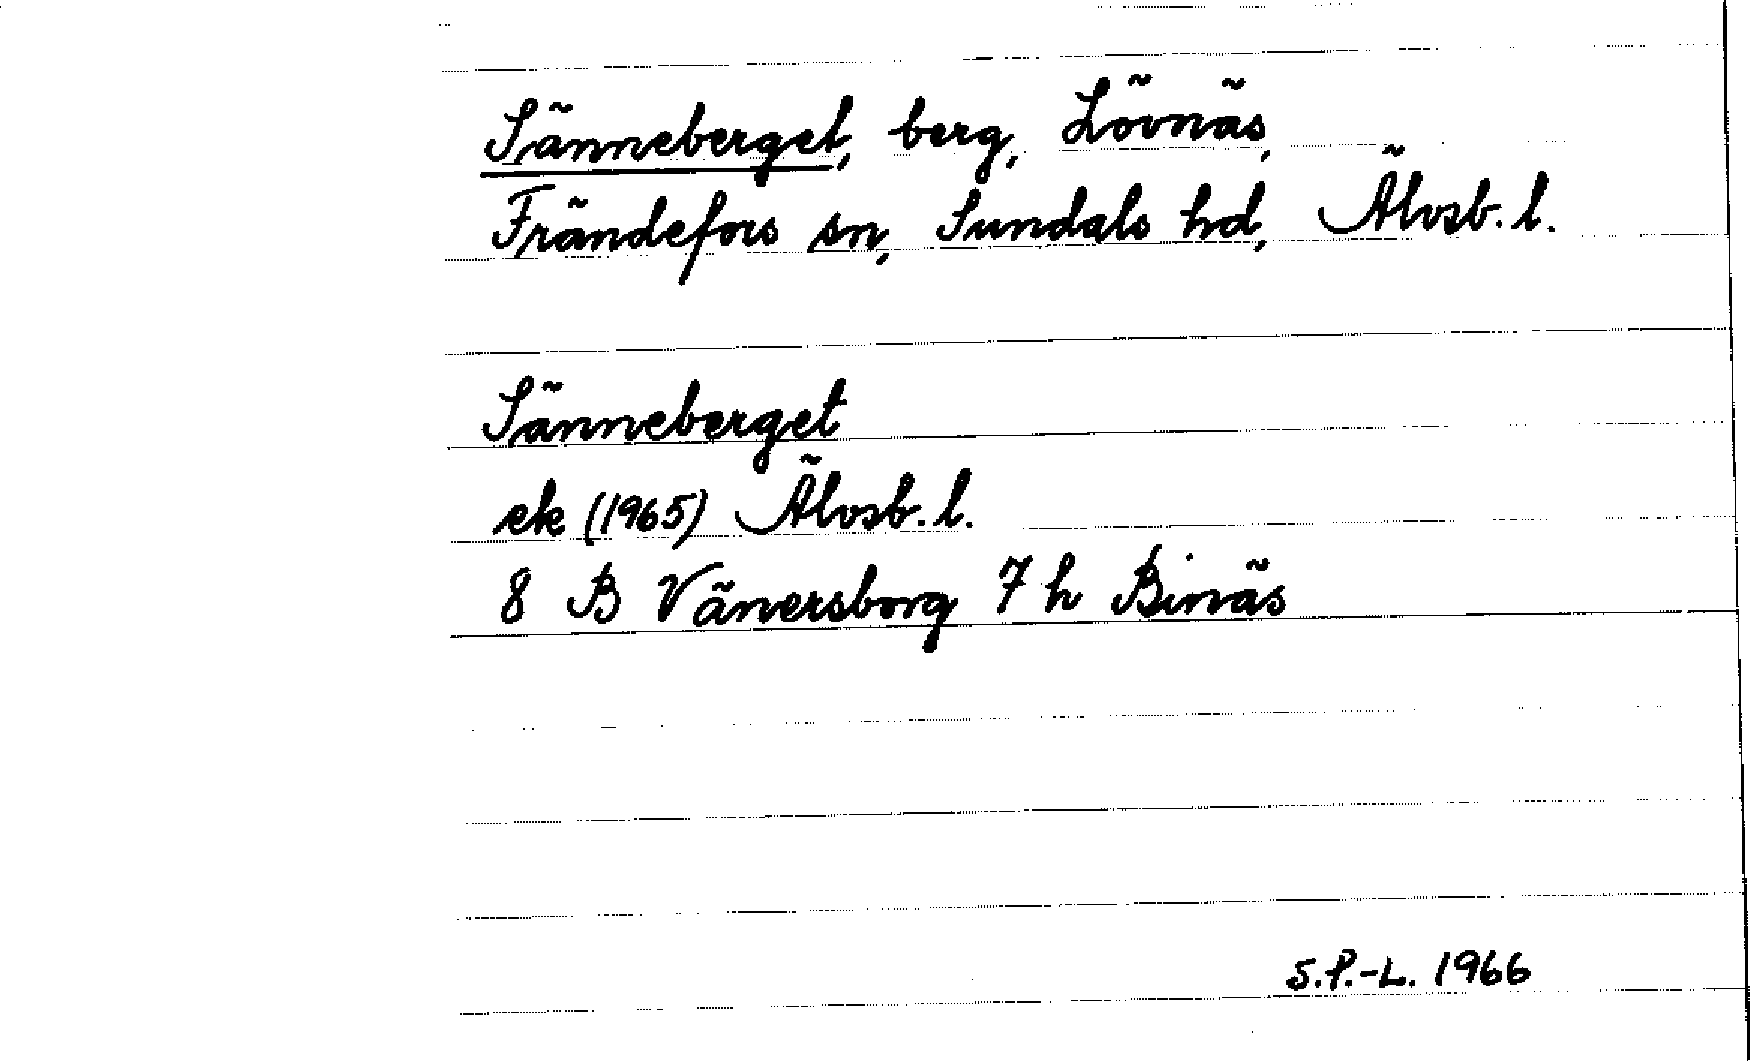 Sänneberget, berg, Lövnäs,
Frändefors sn, Sundals hd, Älvsb. l.
Sänneberget
ek (1965) Älvsb. l.
8 B Vänersborg 7 h Binäs
S.P.-L. 1966